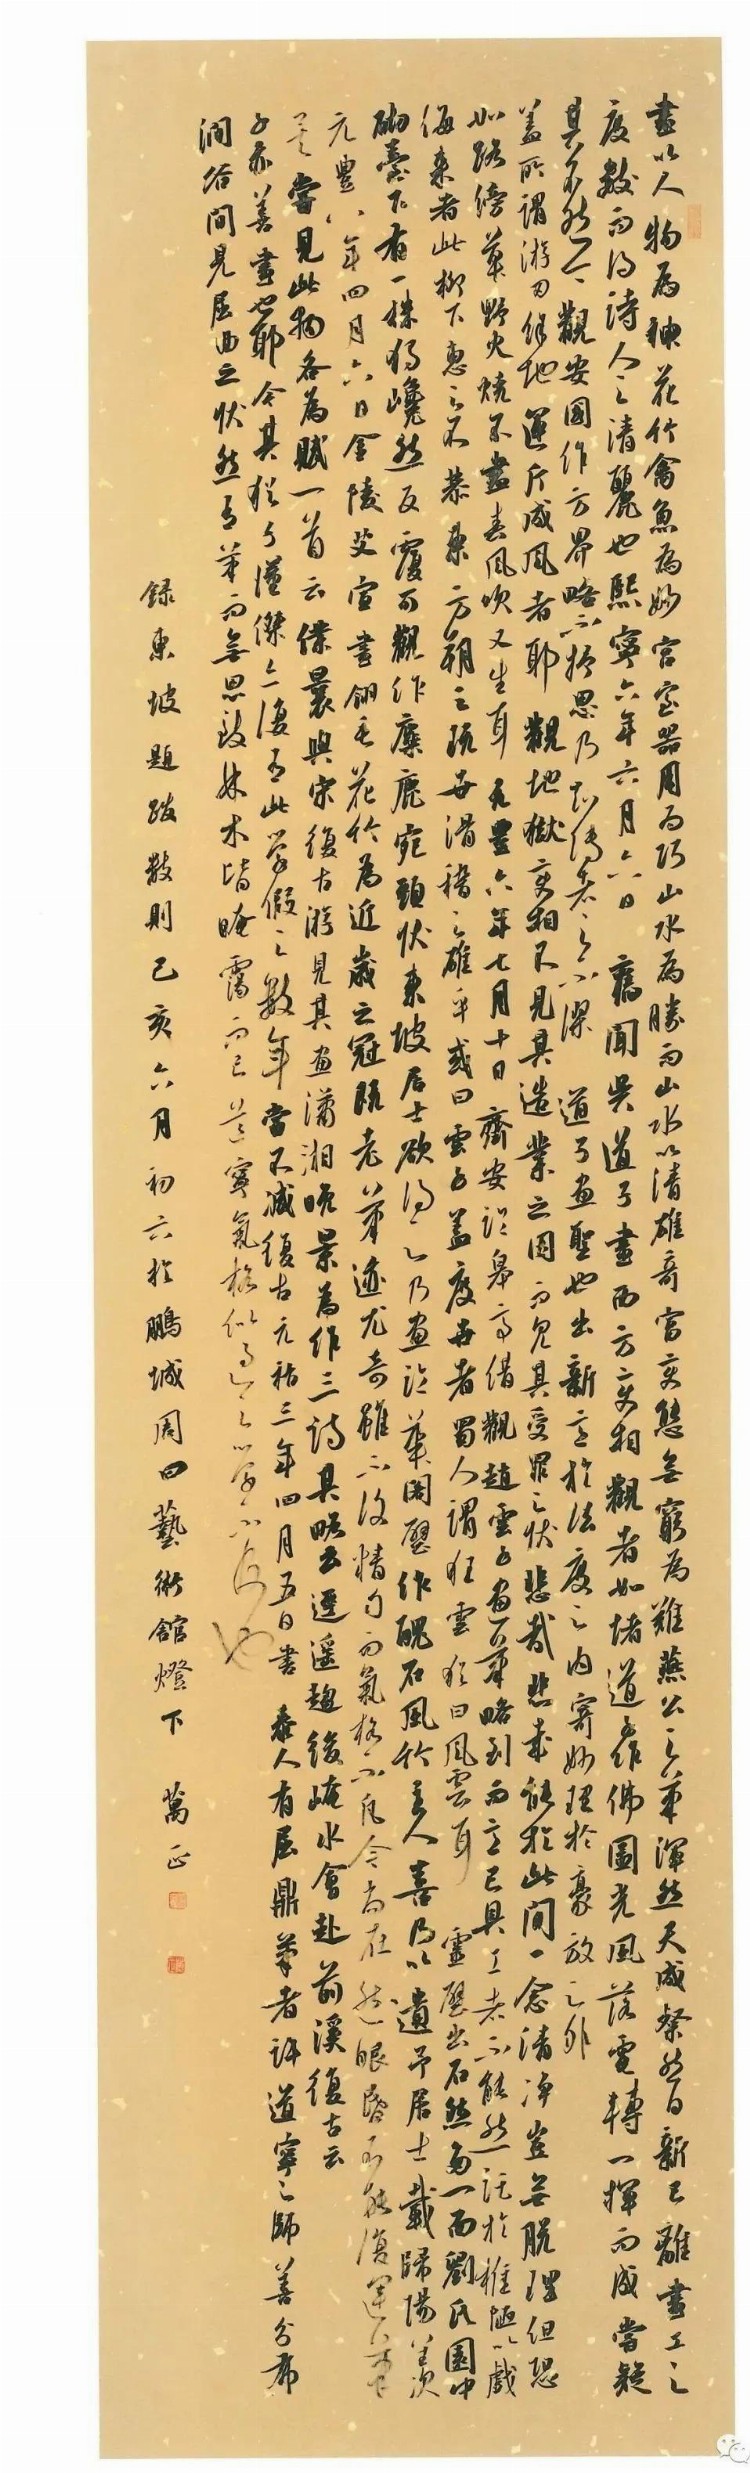 畫以人物為神花竹禽魚為妙宮室器用為巧山水為勝而山水以清雄奇富變態無窮為難燕公之筆渾然天成粲然日新已離畫工之
度數而得詩人之清麗也熙寧六年六月六日 舊聞吳道子畫西方變相觀者如堵道子作佛圓光風落電轉一揮而成嘗疑
其不然今觀安國作方界略不抒思乃知傳者之不謬 道子畫聖也出新意於法度之內寄妙理於豪放之外
蓋所謂游刃餘地運斤成風者耶 觀地獄變相不見其造業之因而見其受罪之狀悲哉悲哉能於此間一念清淨豈無脫理但恐
如路傍草野火燒不盡春風吹又生耳 元豐六年七月十日齊安臨皋亭借觀 趙雲子畫筆略到而意已具工者不能然託於椎陋以戲
侮來者此柳下惠之不恭東方朔之玩世滑稽之雄乎或曰雲子蓋度世者蜀人謂狂雲猶曰風雲耳 靈壁出石然多一面劉氏園中
砌臺下有一株獨巉然反覆可觀作麋鹿宛頸狀東坡居士欲得之乃畫臨華閣壁作醜石風竹主人喜乃以遺予居士載歸陽羨
元豐八年四月六日 金陵艾宣畫翎毛花竹為近歲之冠既老筆迹尤奇雖不復精勻而氣格不凡今尚在然眼昏不能復運筆
矣嘗見此物各為賦一首云 僕曩與宋復古游見其畫瀟湘晚景為作三詩其略云逕遙趨後崦水會赴前溪復古云
子亦善畫也耶今其猶子漢傑亦復有此學假之數年當不減復古元祐三年四月五日書 秦人有屈鼎筆者許道寧之師善分布
澗谷間見屈曲之狀然有筆而無思致林木皆晻靄而已道寧氣格似過之學不及也
錄東坡題跋數則己亥六月初六於鵬城周四藝術館燈下 萬正